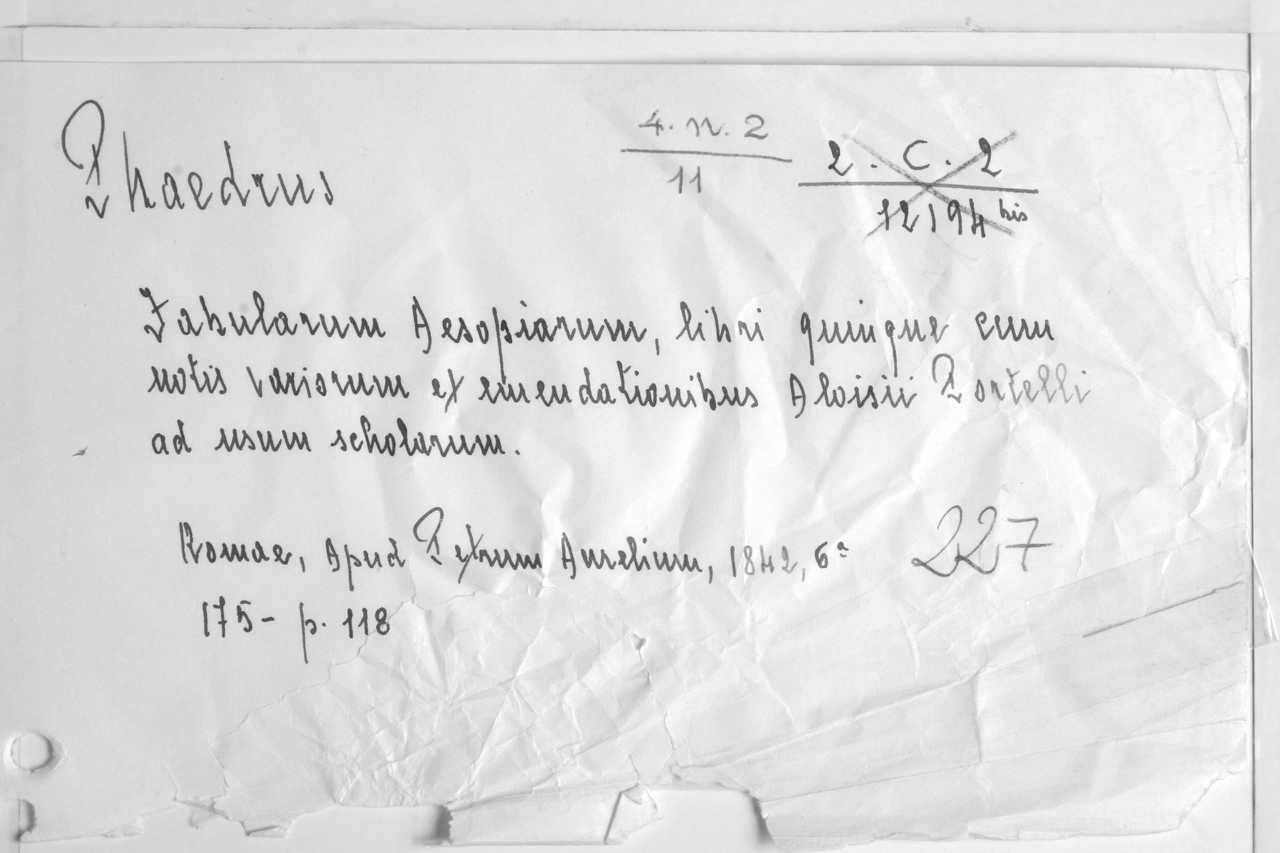 Phaedrus
4. n. 2
11
2. C. 2
12194 bis
Fabularum Aesopiarum, libri quinque cum
notis variorum et emendationibus Aloisii Portelli
ad usum scholarum.
Romae, apud Petrum Aurelium, 1842, 6ª
227
175- p. 118